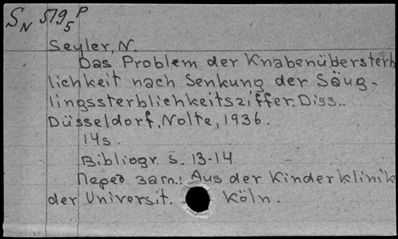 S_N 519/5 P
Seyler, N.
Das Problem der Knabenübersterb
lichkeit nach Senkung der Säug-
lingssterblichkeitsziffer. Diss..
Düsseldorf, Nolte, 1936.
14s.
Bibliogr. s. 13-14
Перед загл.: Aus der Kinderklinik
der Universit. Köln.